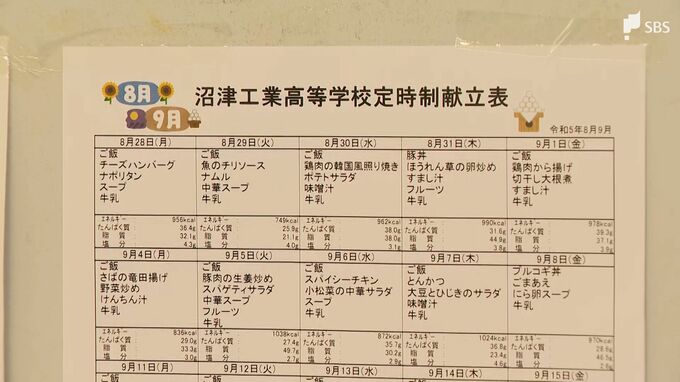 SBS
沼津工業高等学校定時制献立表
8月
9月
令和5年8月9月
8月28日(月)
ご飯
チーズハンバーグ
ナポリタン
スープ
牛乳
エネルギー 956kcal
たんぱく質 36.4g
脂質 32.1g
塩分 4.3g
8月29日(火)
ご飯
魚のチリソース
ナムル
中華スープ
牛乳
エネルギー 749kcal
たんぱく質 25.9g
脂質 21.1g
塩分 4.0g
8月30日(水)
ご飯
鶏肉の韓国風照り焼き
ポテトサラダ
味噌汁
牛乳
エネルギー 962kcal
たんぱく質 38.0g
脂質 31.6g
塩分 3.1g
8月31日(木)
豚丼
ほうれん草の卵炒め
すまし汁
フルーツ
牛乳
エネルギー 990kcal
たんぱく質 31.6g
脂質 44.9g
塩分 3.8g
9月1日(金)
ご飯
鶏肉から揚げ
切干し大根煮
すまし汁
牛乳
エネルギー 978kcal
たんぱく質 39.3g
脂質 37.1g
塩分 3.9g
9月4日(月)
ご飯
さばの竜田揚げ
野菜炒め
けんちん汁
牛乳
エネルギー 836kcal
たんぱく質 29.0g
脂質 33.3g
塩分 3.0g
9月5日(火)
ご飯
豚肉の生姜炒め
スパゲティサラダ
中華スープ
フルーツ
牛乳
エネルギー 1038kcal
たんぱく質 27.4g
脂質 49.7g
塩分 2.7g
9月6日(水)
ご飯
スパイシーチキン
小松菜の中華サラダ
スープ
牛乳
エネルギー 872kcal
たんぱく質 35.7g
脂質 30.2g
塩分 2.9g
9月7日(木)
ご飯
とんかつ
大豆とひじきのサラダ
味噌汁
牛乳
エネルギー 1024kcal
たんぱく質 36.8g
脂質 23.4g
塩分 4.6g
9月8日(金)
プルコギ丼
ごまあえ
にら卵スープ
牛乳
エネルギー 970kcal
たんぱく質
脂質 46.5g
塩分
9月11日(月)
9月12日(火)
9月13日(水)
9月14日(木)
9月15日(金)